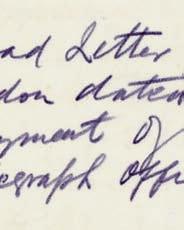 ead Letter
don dated
yment of
egraph offi